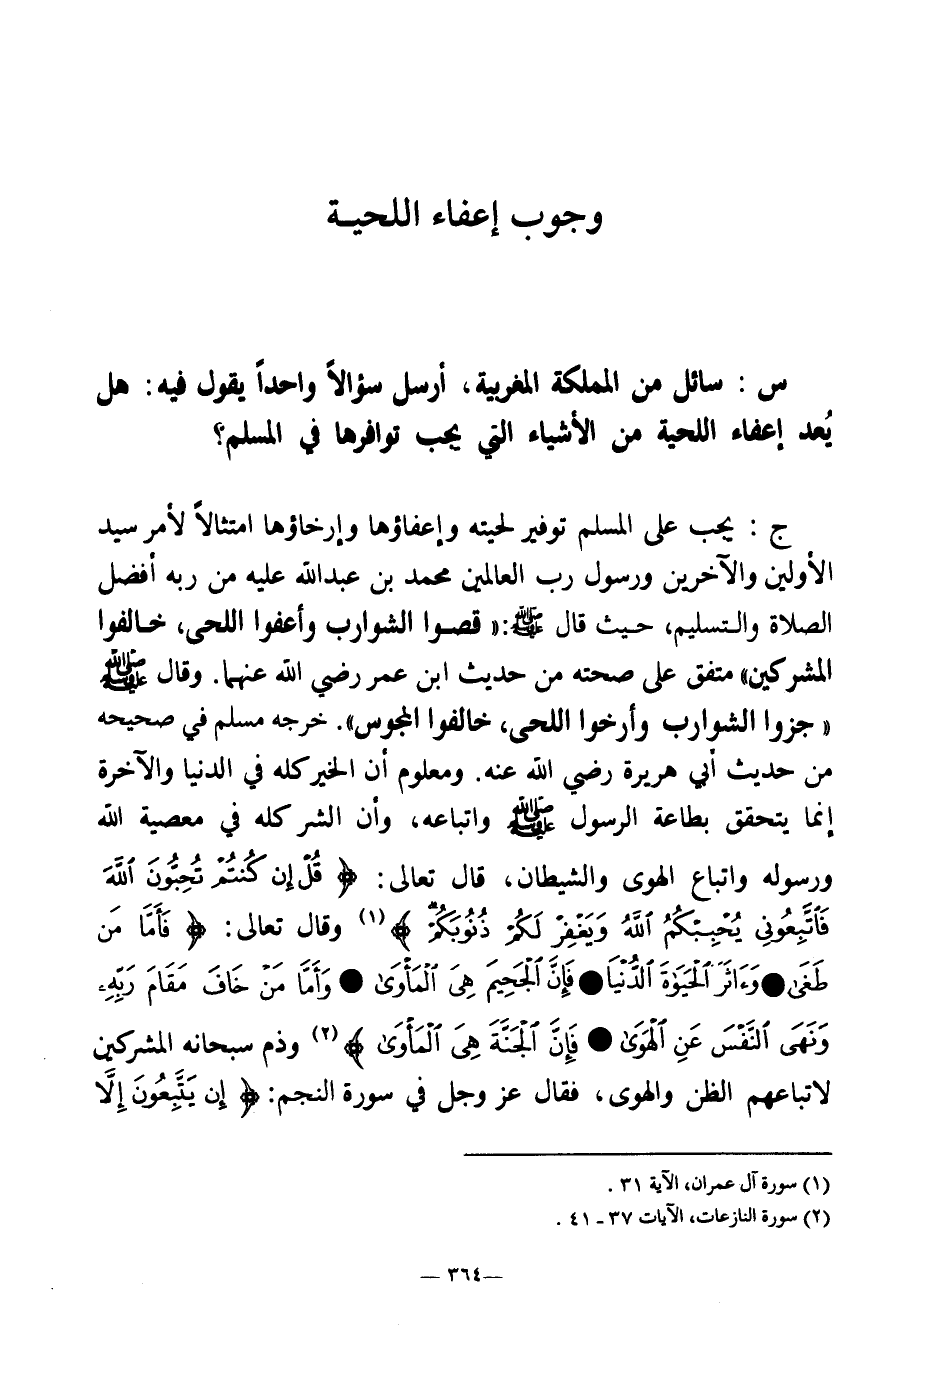 وجوب إعفاء اللحيـة
س : سائل من المملكة المغربية، أرسل سؤالاً واحداً يقول فيه: هل
يُعد إعفاء اللحية من الأشياء التي يجب توافرها في المسلم؟
ج : يجب على المسلم توفير لحيته وإعفاؤها وإرخاؤها امتثالاً لأمر سيد
الأولين والآخرين ورسول رب العالمين محمد بن عبدالله عليه من ربه أفضل
الصلاة والـتسليم، حـيث قال ﷺ:« قصـوا الشوارب وأعفوا اللحى، خـالفوا
المشركين» متفق على صحته من حديث ابن عمر رضي الله عنهما. وقال ﷺ
« جزوا الشوارب وأرخوا اللحى، خالفوا المجوس». خرجه مسلم في صحيحه
من حديث أبي هريرة رضي الله عنه. ومعلوم أن الخير كله في الدنيا والآخرة
إنما يتحقق بطاعة الرسول ﷺ واتباعه، وأن الشر كله في معصية الله
ورسوله واتباع الهوى والشيطان، قال تعالى: ﴿ قُلْ إِن كُنتُمْ تُحِبُّونَ ٱللَّهَ
فَٱتَّبِعُونِى يُحْبِبْكُمُ ٱللَّهُ وَيَغْفِرْ لَكُمْ ذُنُوبَكُمْ ۗ ﴾(١) وقال تعالى: ﴿ فَأَمَّا مَن
طَغَىٰ ● وَءَاثَرَ ٱلْحَيَوٰةَ ٱلدُّنْيَا ● فَإِنَّ ٱلْجَحِيمَ هِىَ ٱلْمَأْوَىٰ ● وَأَمَّا مَنْ خَافَ مَقَامَ رَبِّهِۦ
وَنَهَى ٱلنَّفْسَ عَنِ ٱلْهَوَىٰ ● فَإِنَّ ٱلْجَنَّةَ هِىَ ٱلْمَأْوَىٰ ﴾(٢) وذم سبحانه المشركين
لاتباعهم الظن والهوى، فقال عز وجل في سورة النجم: ﴿ إِن يَتَّبِعُونَ إِلَّا
(١) سورة آل عمران، الآية ٣١ .
(٢) سورة النازعات، الآيات ٣٧ ـ ٤١ .
— ٣٦٤ —